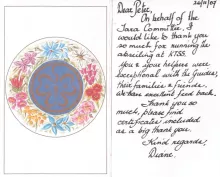 26/11/07
Dear Peter,
On behalf of the
Tara Committee, I
would like to thank you
so much for running the
abseiling at KTSS.
You & your helpers were
exceptional with the Guides,
their families & friends.
We have excellent feed back.
Thank you so
much, please find
certificates included
as a big thank you.
Kind regards,
Diane.